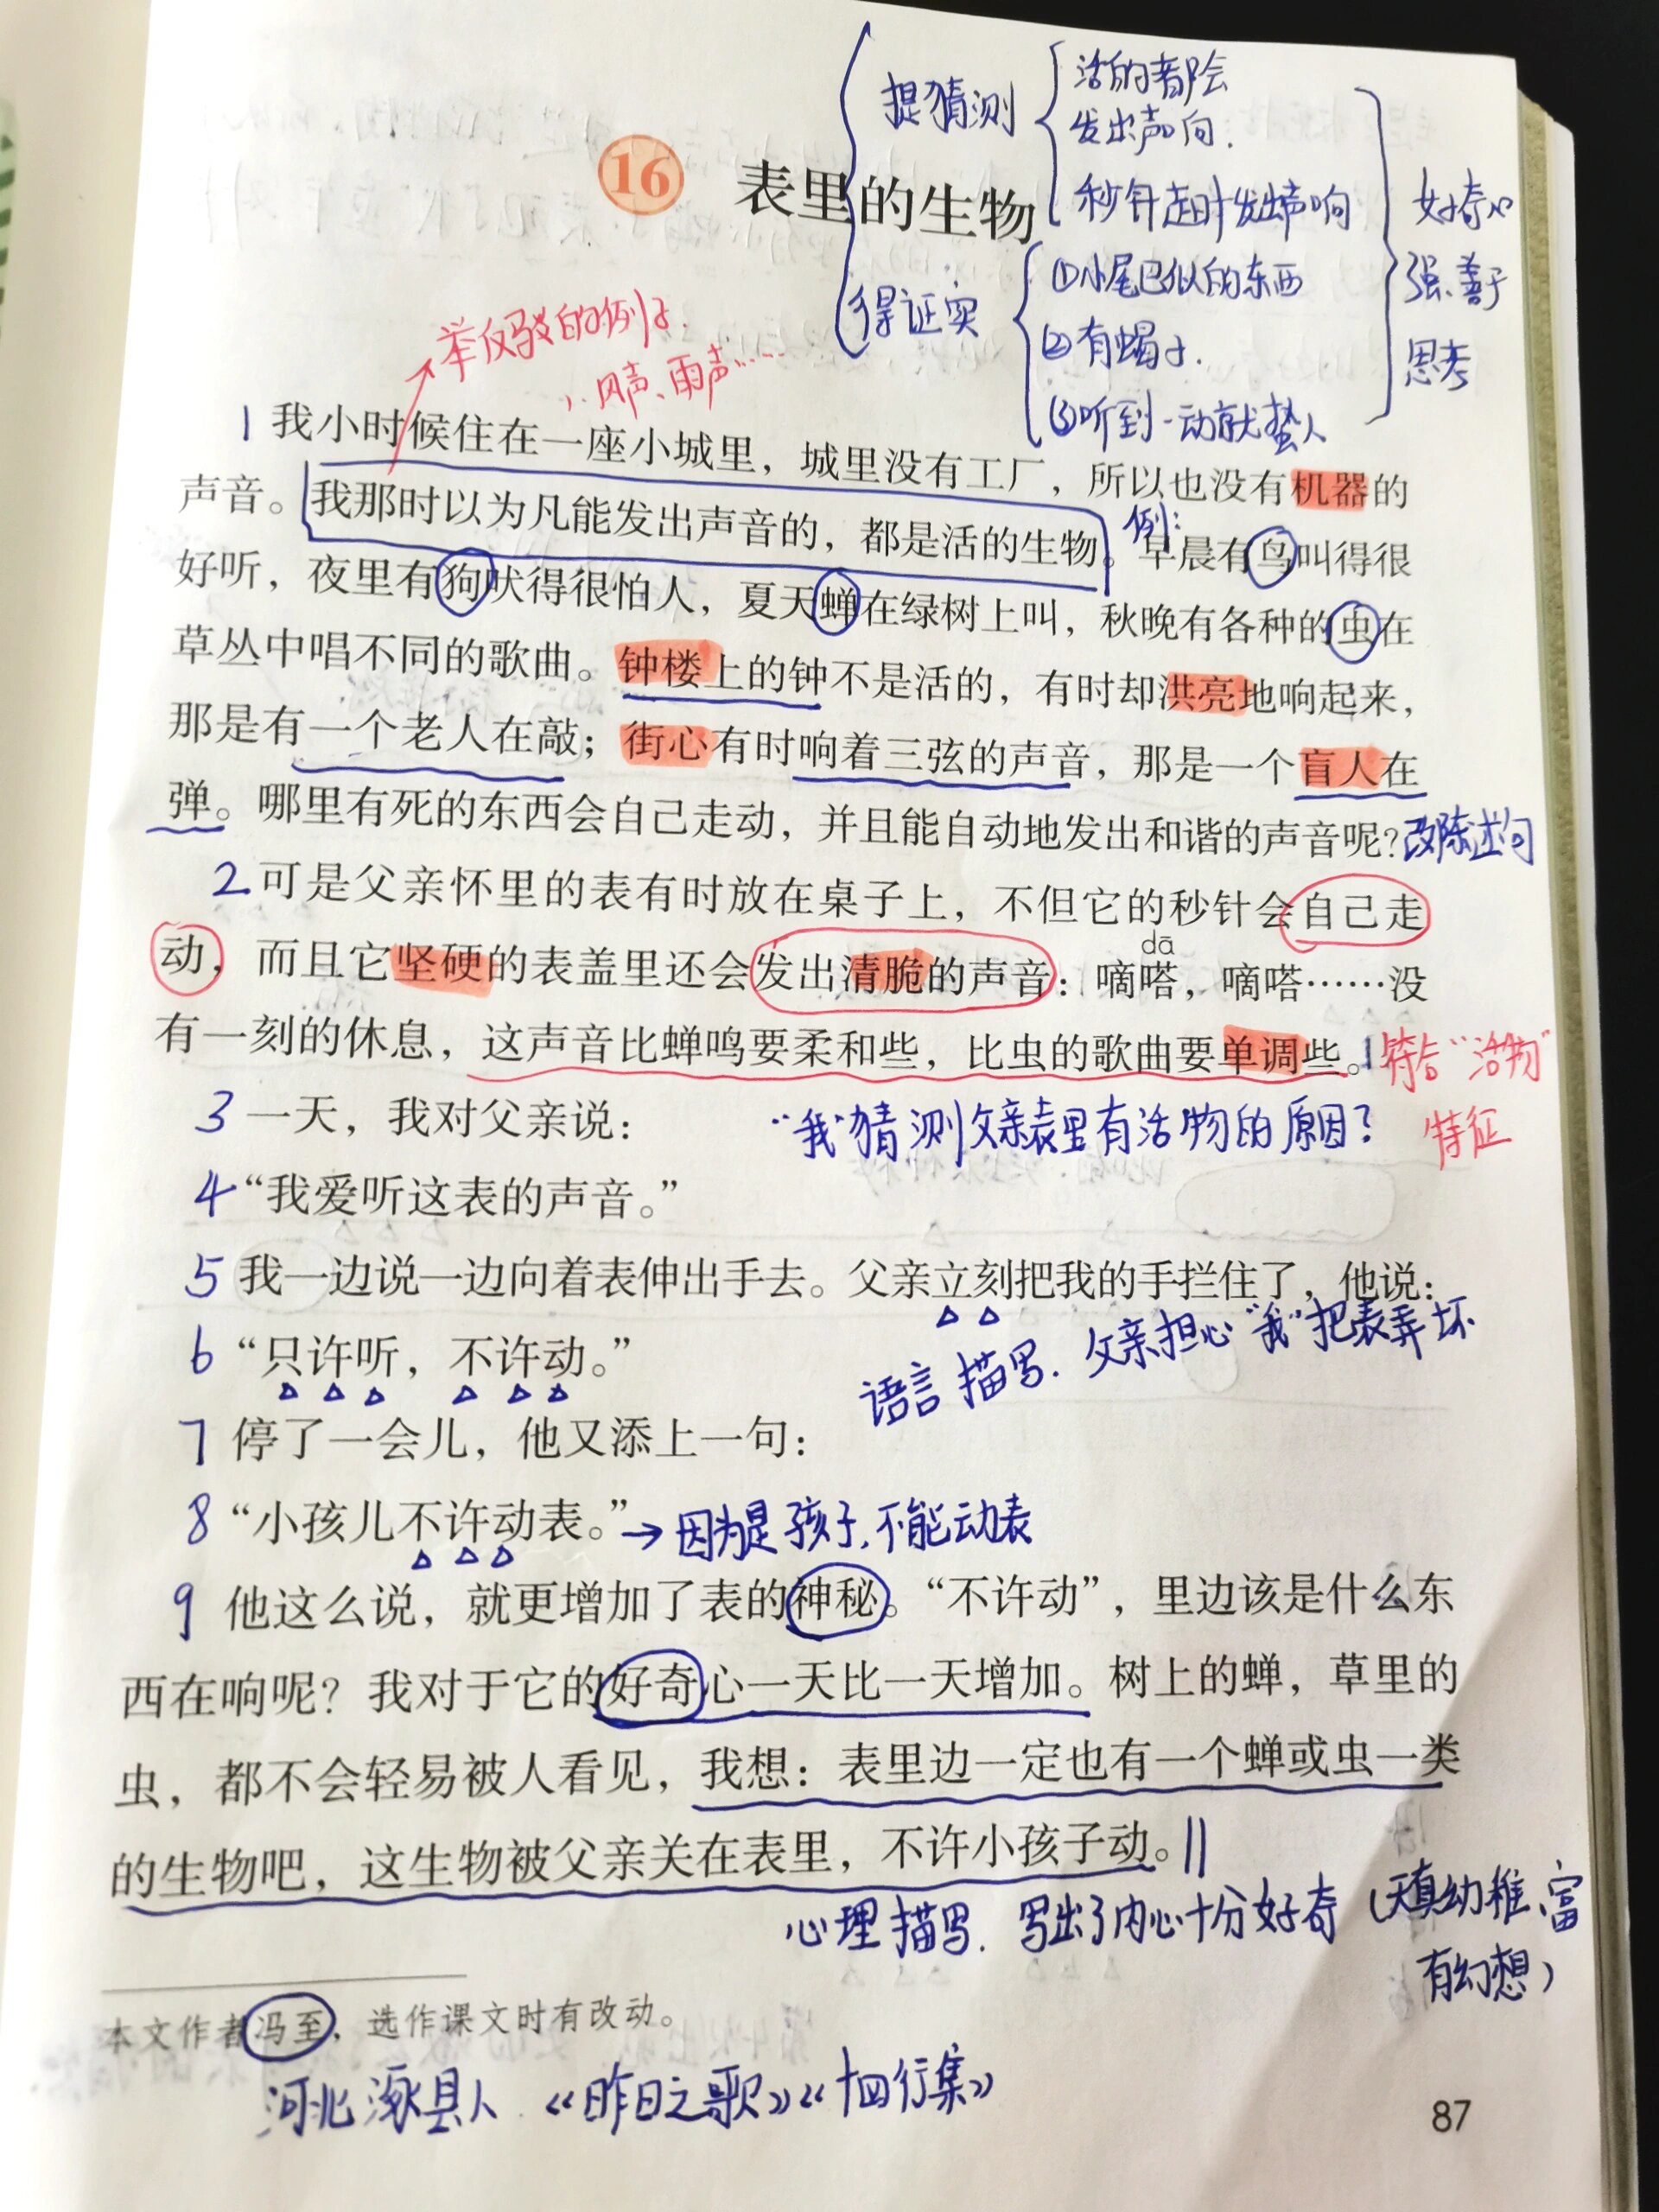 提猜测
活的都会
发出声响.
秒针走时发出声响
得证实
①小尾巴似的东西
②有蝎子.
③听到一动就蜇人
好奇心
强、善于
思考
16 表里的生物
举反驳的例子.
风声、雨声……
1 我小时候住在一座小城里，城里没有工厂，所以也没有机器的
声音。我那时以为凡能发出声音的，都是活的生物。早晨有鸟叫得很
例:
好听，夜里有狗吠得很怕人，夏天蝉在绿树上叫，秋晚有各种的虫在
草丛中唱不同的歌曲。钟楼上的钟不是活的，有时却洪亮地响起来，
那是有一个老人在敲；街心有时响着三弦的声音，那是一个盲人在
弹。哪里有死的东西会自己走动，并且能自动地发出和谐的声音呢？改陈述句
2 可是父亲怀里的表有时放在桌子上，不但它的秒针会自己走
dā
动，而且它坚硬的表盖里还会发出清脆的声音：嘀嗒，嘀嗒……没
有一刻的休息，这声音比蝉鸣要柔和些，比虫的歌曲要单调些。符合“活物”
特征
3 一天，我对父亲说：
“我”猜测父亲表里有活物的原因？
4 “我爱听这表的声音。”
5 我一边说一边向着表伸出手去。父亲立刻把我的手拦住了，他说：
6 “只许听，不许动。”
语言描写. 父亲担心“我”把表弄坏
7 停了一会儿，他又添上一句：
8 “小孩儿不许动表。”→因为是孩子,不能动表
9 他这么说，就更增加了表的神秘。“不许动”，里边该是什么东
西在响呢？我对于它的好奇心一天比一天增加。树上的蝉，草里的
虫，都不会轻易被人看见，我想：表里边一定也有一个蝉或虫一类
的生物吧，这生物被父亲关在表里，不许小孩子动。
心理描写. 写出了内心十分好奇（天真幼稚、富
有幻想）
本文作者冯至，选作课文时有改动。
河北涿县人.《昨日之歌》《十四行集》
87